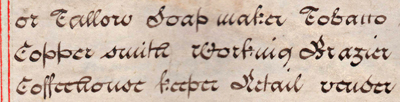 or Tallow Soap maker Tobacco
Copper smith Working Brazier
Coffeehouse keeper Retail vender